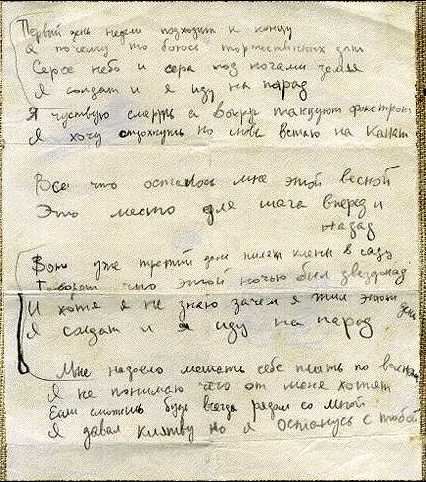 Первый день недели подходит к концу
а почему то боюсь торжественных дат
Серое небо и сера под ногами земля
Я солдат и я иду на парад
Я чуствую смерть а вокруг танцуют фокстрот
Я хочу отдохнуть но снова встаю на канат
Все что осталось мне этой весной
Это место для шага вперед и
назад
Вот уже третий день пилят клены в саду
Говорят что этой ночью был звездопад
И хотя я не знаю зачем я жил эти дни
Я солдат и я иду на парад
Мне надоело мешать себе плыть по
Я не понимаю чего от меня хотят
Если сможешь будь всегда рядом со мной
Я давал клятву но я останусь с тобой